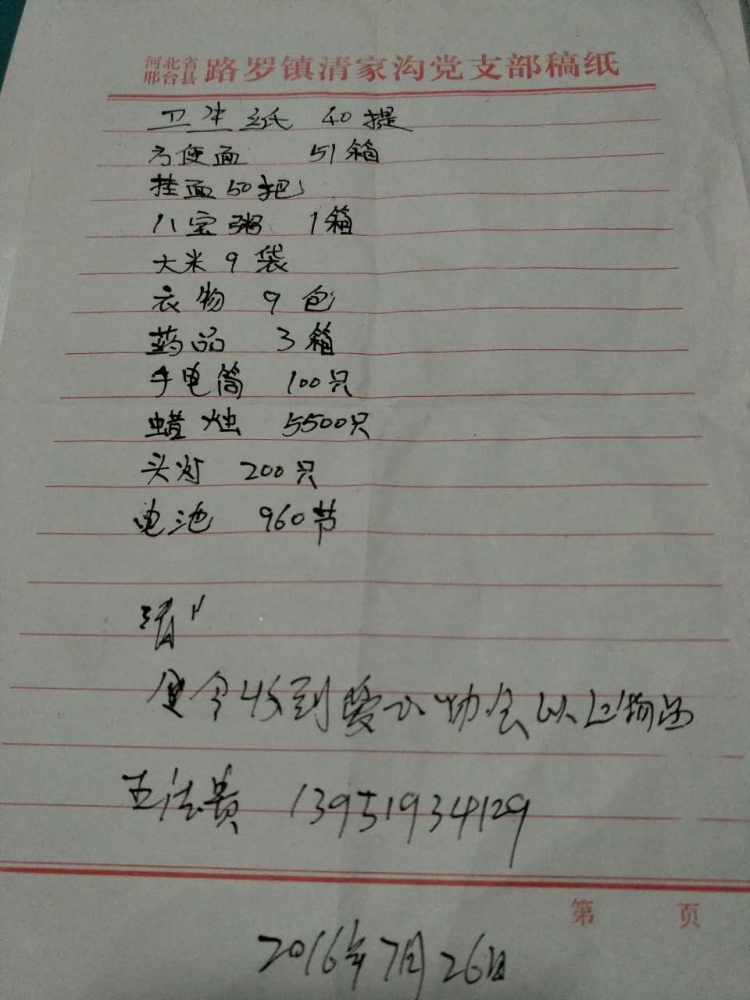 河北省邢台县 路罗镇清家沟党支部稿纸
卫生纸 40提
方便面 51箱
挂面50把
八宝粥 1箱
大米9袋
衣物 9包
药品 3箱
手电筒 100只
蜡烛 5500只
头灯 200只
电池 960节
今收到爱心协会以上物品
王法贵 13951934129
第 页
2016年7月26日